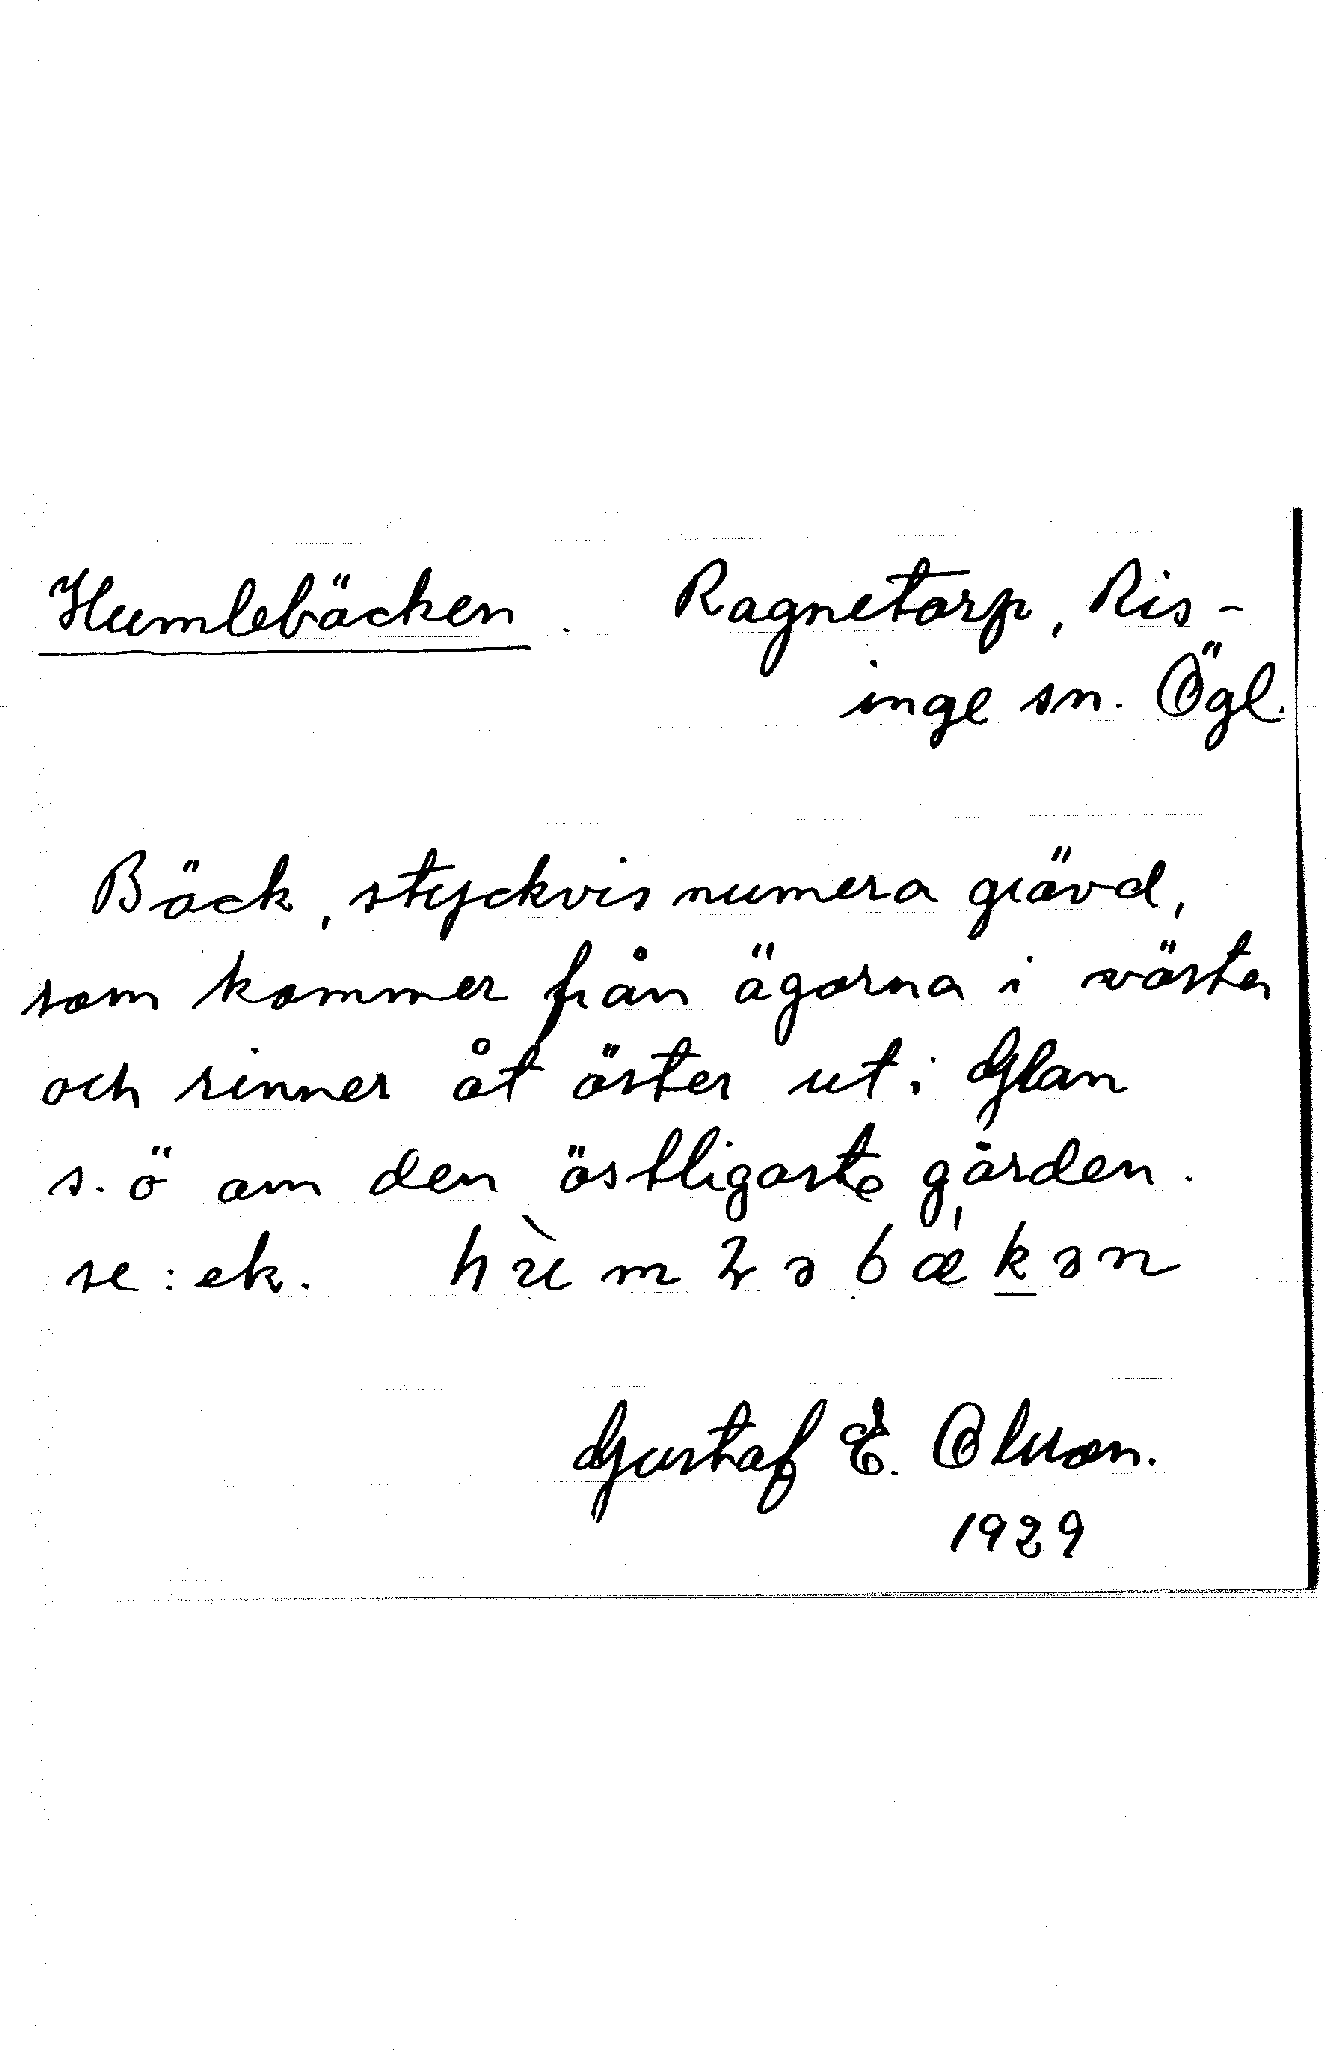 Humlebäcken. Ragnetorp, Ris-
inge sn. Ögl.
Bäck, styckvis numera grävd,
som kommer från ägorna i väster
och rinner åt öster ut i Glan
s. ö om den östligaste gården.
se: ek. hùmləbǽkən
Gustaf E. Olsson.
1929